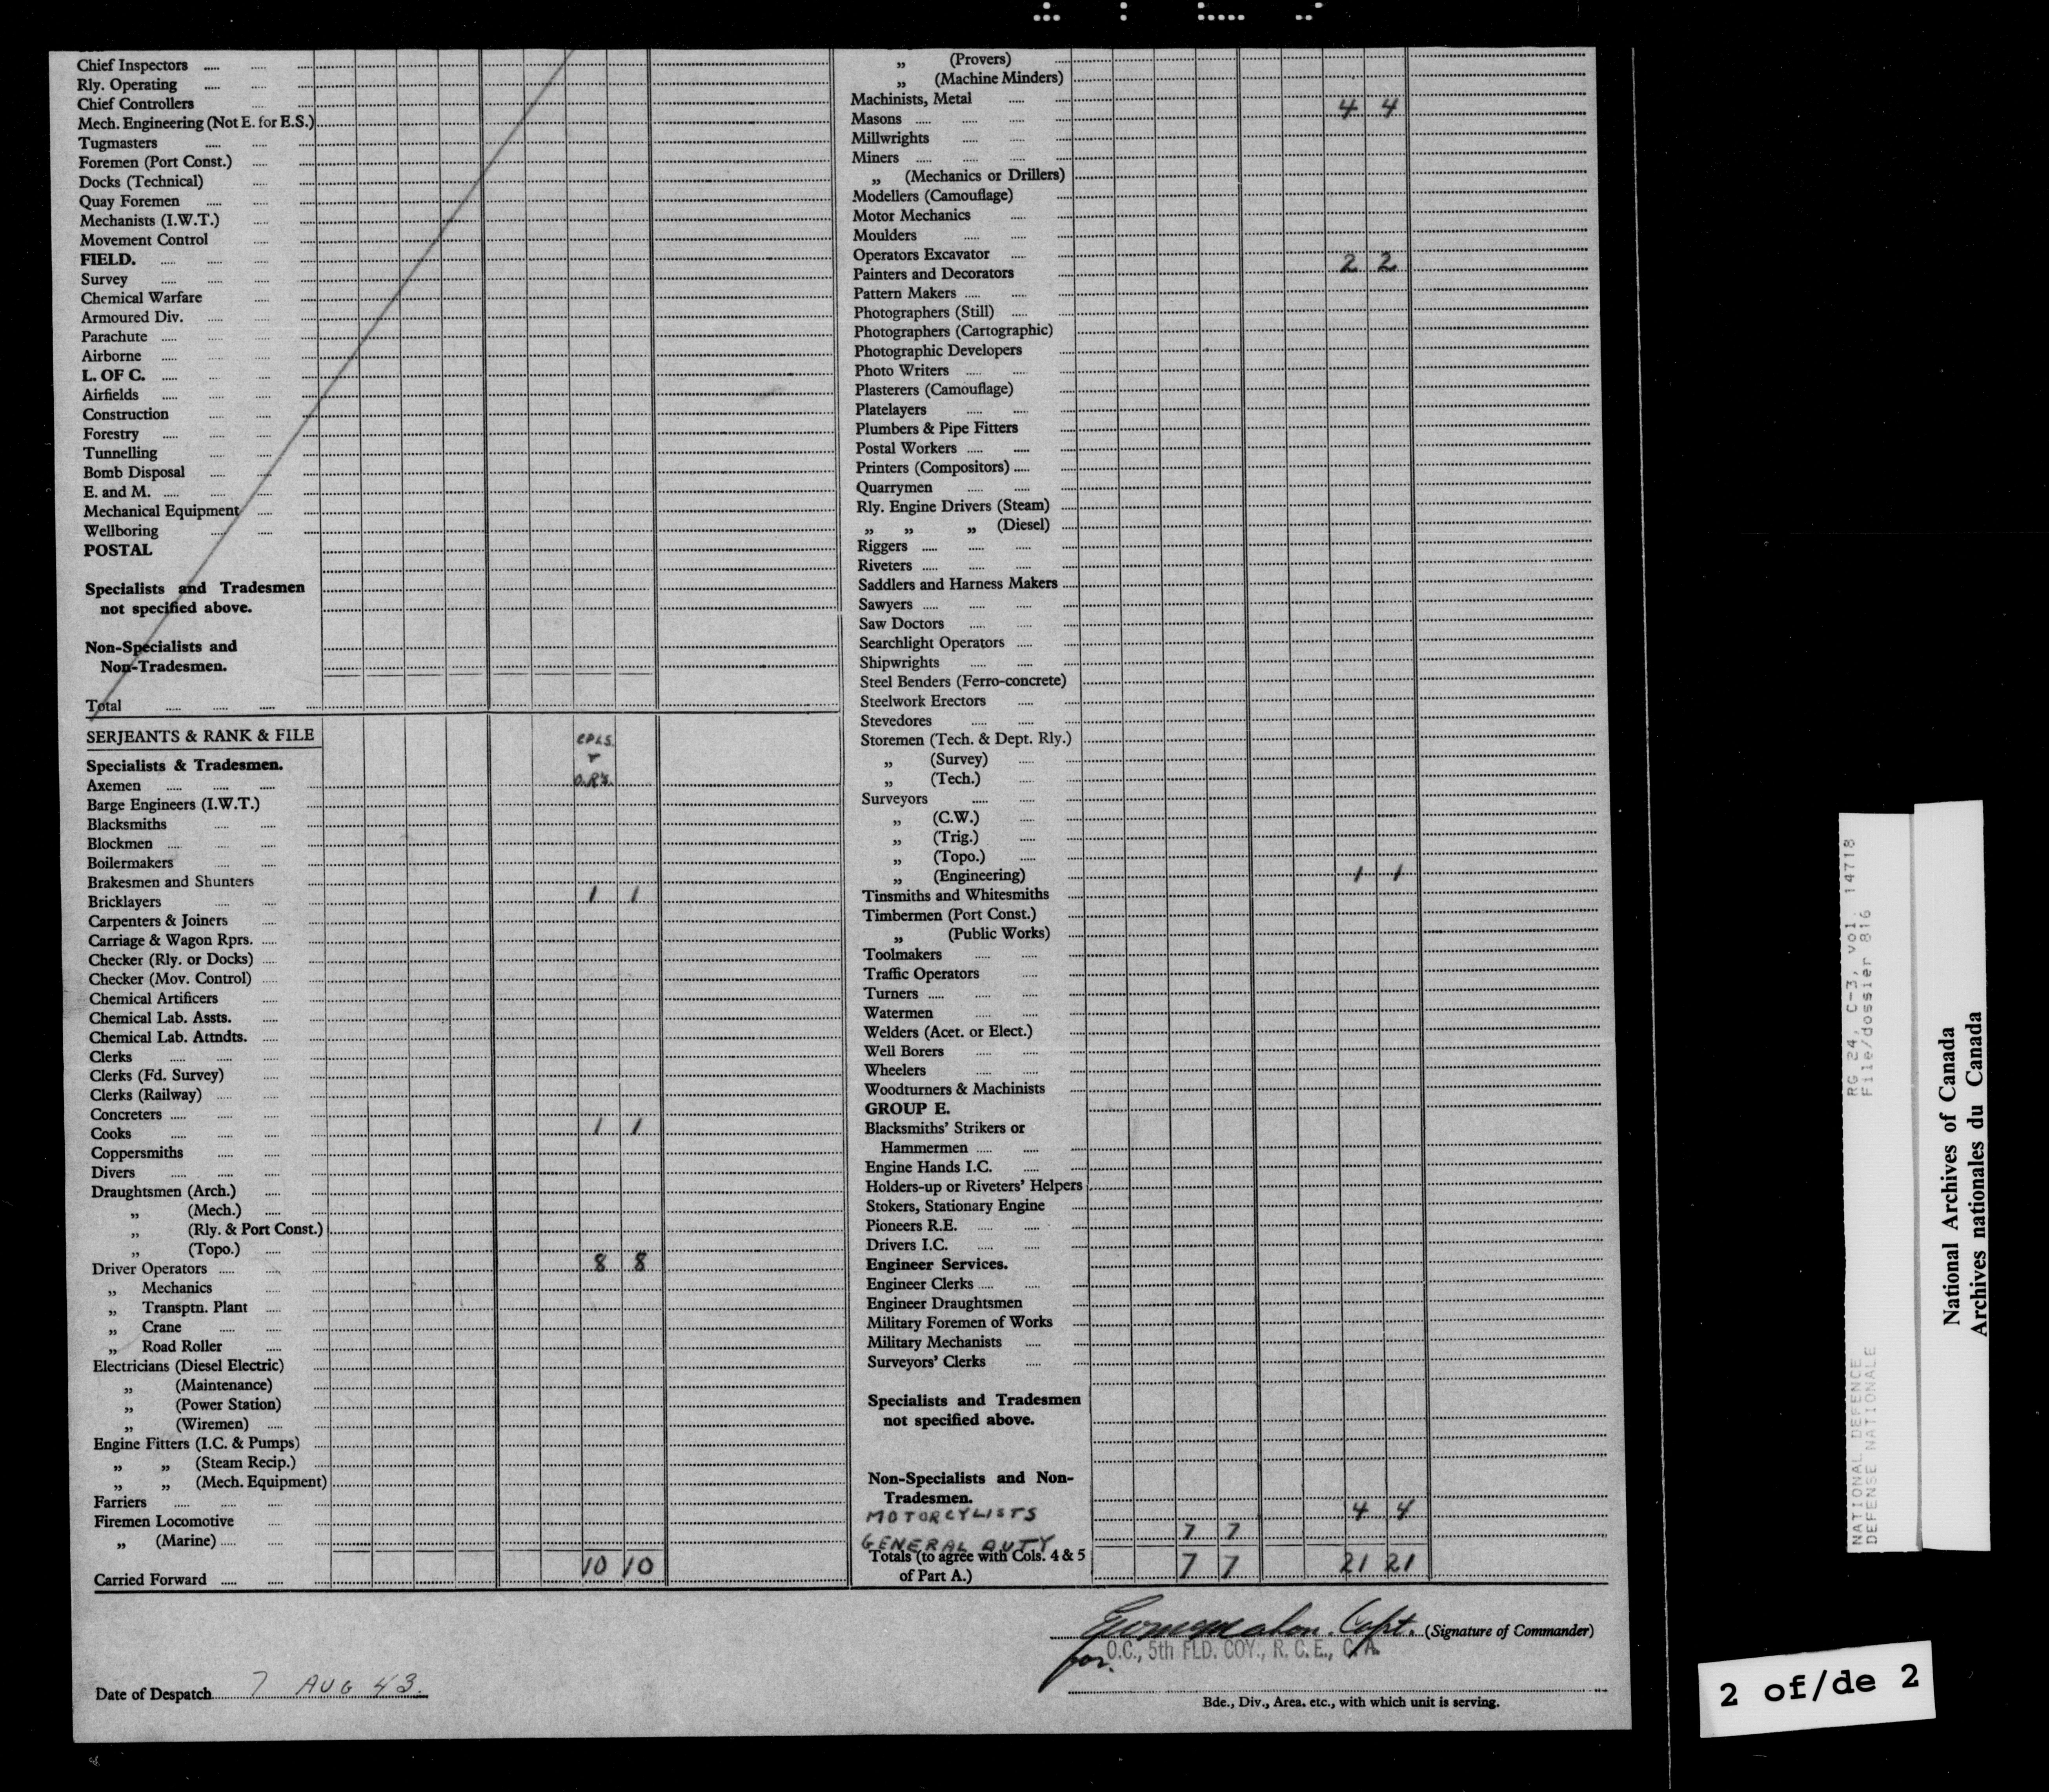 Chief Inspectors
Rly. Operating
Chief Controllers
Mech. Engineering (Not E. for E.S.)
Tugmasters
Foremen (Port Const.)
Docks (Technical)
Quay Foremen
Mechanists (I.W.T.)
Movement Control
FIELD.
Survey
Chemical Warfare
Armoured Div.
Parachute
Airborne
L. OF C.
Airfields
Construction
Forestry
Tunnelling
Bomb Disposal
E. and M.
Mechanical Equipment
Wellboring
POSTAL
Specialists and Tradesmen
not specified above.
Non-Specialists and
Non-Tradesmen.
Total
SERJEANTS & RANK & FILE
CPLS.
O.R's.
Specialists & Tradesmen.
Axemen
Barge Engineers (I.W.T.)
Blacksmiths
Blockmen
Boilermakers
Brakesmen and Shunters
Bricklayers 1 1
Carpenters & Joiners
Carriage & Wagon Rprs.
Checker (Rly. or Docks)
Checker (Mov. Control)
Chemical Artificers
Chemical Lab. Assts.
Chemical Lab. Attndts.
Clerks
Clerks (Fd. Survey)
Clerks (Railway)
Concreters
Cooks 1 1
Coppersmiths
Divers
Draughtsmen (Arch.)
„ (Mech.)
„ (Rly. & Port Const.)
„ (Topo.)
Driver Operators 8 8
„ Mechanics
„ Transptn. Plant
„ Crane
„ Road Roller
Electricians (Diesel Electric)
„ (Maintenance)
„ (Power Station)
„ (Wiremen)
Engine Fitters (I.C. & Pumps)
„ „ (Steam Recip.)
„ „ (Mech. Equipment)
Farriers
Firemen Locomotive
„ (Marine)
Carried Forward 10 10
„ (Provers)
„ (Machine Minders)
Machinists, Metal
Masons 4 4
Millwrights
Miners
„ (Mechanics or Drillers)
Modellers (Camouflage)
Motor Mechanics
Moulders
Operators Excavator
Painters and Decorators 2 2
Pattern Makers
Photographers (Still)
Photographers (Cartographic)
Photographic Developers
Photo Writers
Plasterers (Camouflage)
Platelayers
Plumbers & Pipe Fitters
Postal Workers
Printers (Compositors)
Quarrymen
Rly. Engine Drivers (Steam)
„ „ „ (Diesel)
Riggers
Riveters
Saddlers and Harness Makers
Sawyers
Saw Doctors
Searchlight Operators
Shipwrights
Steel Benders (Ferro-concrete)
Steelwork Erectors
Stevedores
Storemen (Tech. & Dept. Rly.)
„ (Survey)
„ (Tech.)
Surveyors
„ (C.W.)
„ (Trig.)
„ (Topo.)
„ (Engineering) 1 1
Tinsmiths and Whitesmiths
Timbermen (Port Const.)
„ (Public Works)
Toolmakers
Traffic Operators
Turners
Watermen
Welders (Acet. or Elect.)
Well Borers
Wheelers
Woodturners & Machinists
GROUP E.
Blacksmiths' Strikers or
Hammermen
Engine Hands I.C.
Holders-up or Riveters' Helpers
Stokers, Stationary Engine
Pioneers R.E.
Drivers I.C.
Engineer Services.
Engineer Clerks
Engineer Draughtsmen
Military Foremen of Works
Military Mechanists
Surveyors' Clerks
Specialists and Tradesmen
not specified above.
Non-Specialists and Non-
Tradesmen.
MOTORCYLISTS 4 4
GENERAL DUTY 7 7
Totals (to agree with Cols. 4 & 5
of Part A.) 7 7 21 21
Capt. (Signature of Commander)
for O.C., 5th FLD. COY., R. C. E., C. A.
Date of Despatch 7 AUG 43.
Bde., Div., Area. etc., with which unit is serving.
NATIONAL DEFENCE RG 24, C-3, vol. 14718
DEFENSE NATIONALE File/dossier 816
National Archives of Canada
Archives nationales du Canada
2 of/de 2